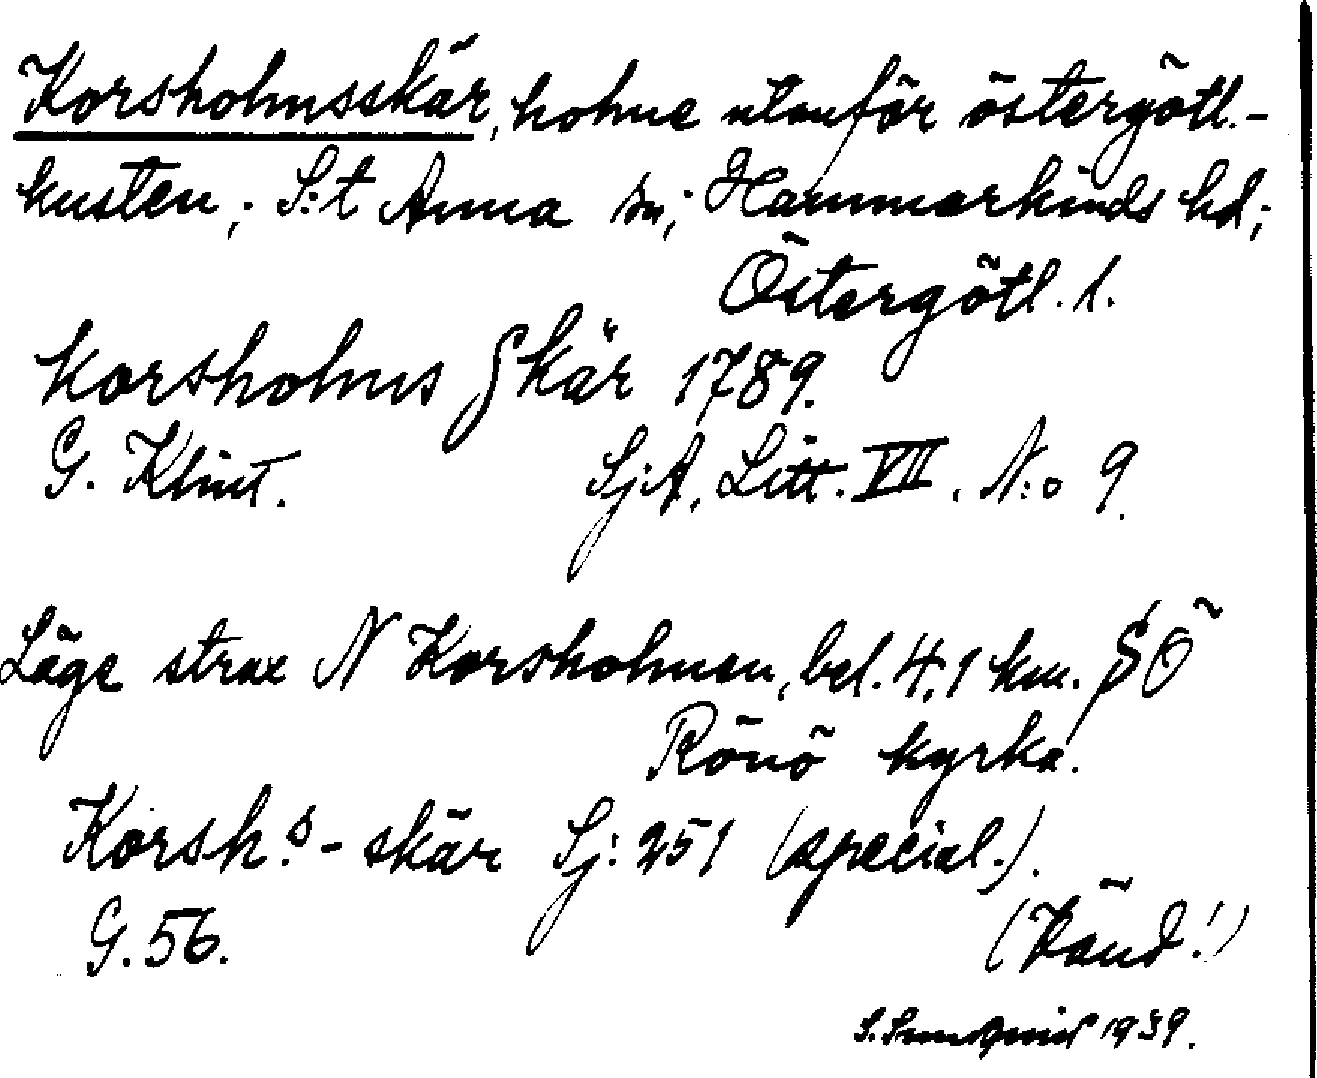 Korsholmsskär, holme utanför östergötl.-
kusten; S:t Anna sn; Hammarkinds hd;
Östergötl. l.
Korsholms Skär 1789.
G. Klint. Sj.A. Litt. VII. N:o 9.
Läge strax N Korsholmen, bel. 4,1 km. SÖ
Rönö kyrka.
Korsh.s-skär Sj: 251 (special.).
G. 56. (Känd!)
S. Sundqvist 1939.